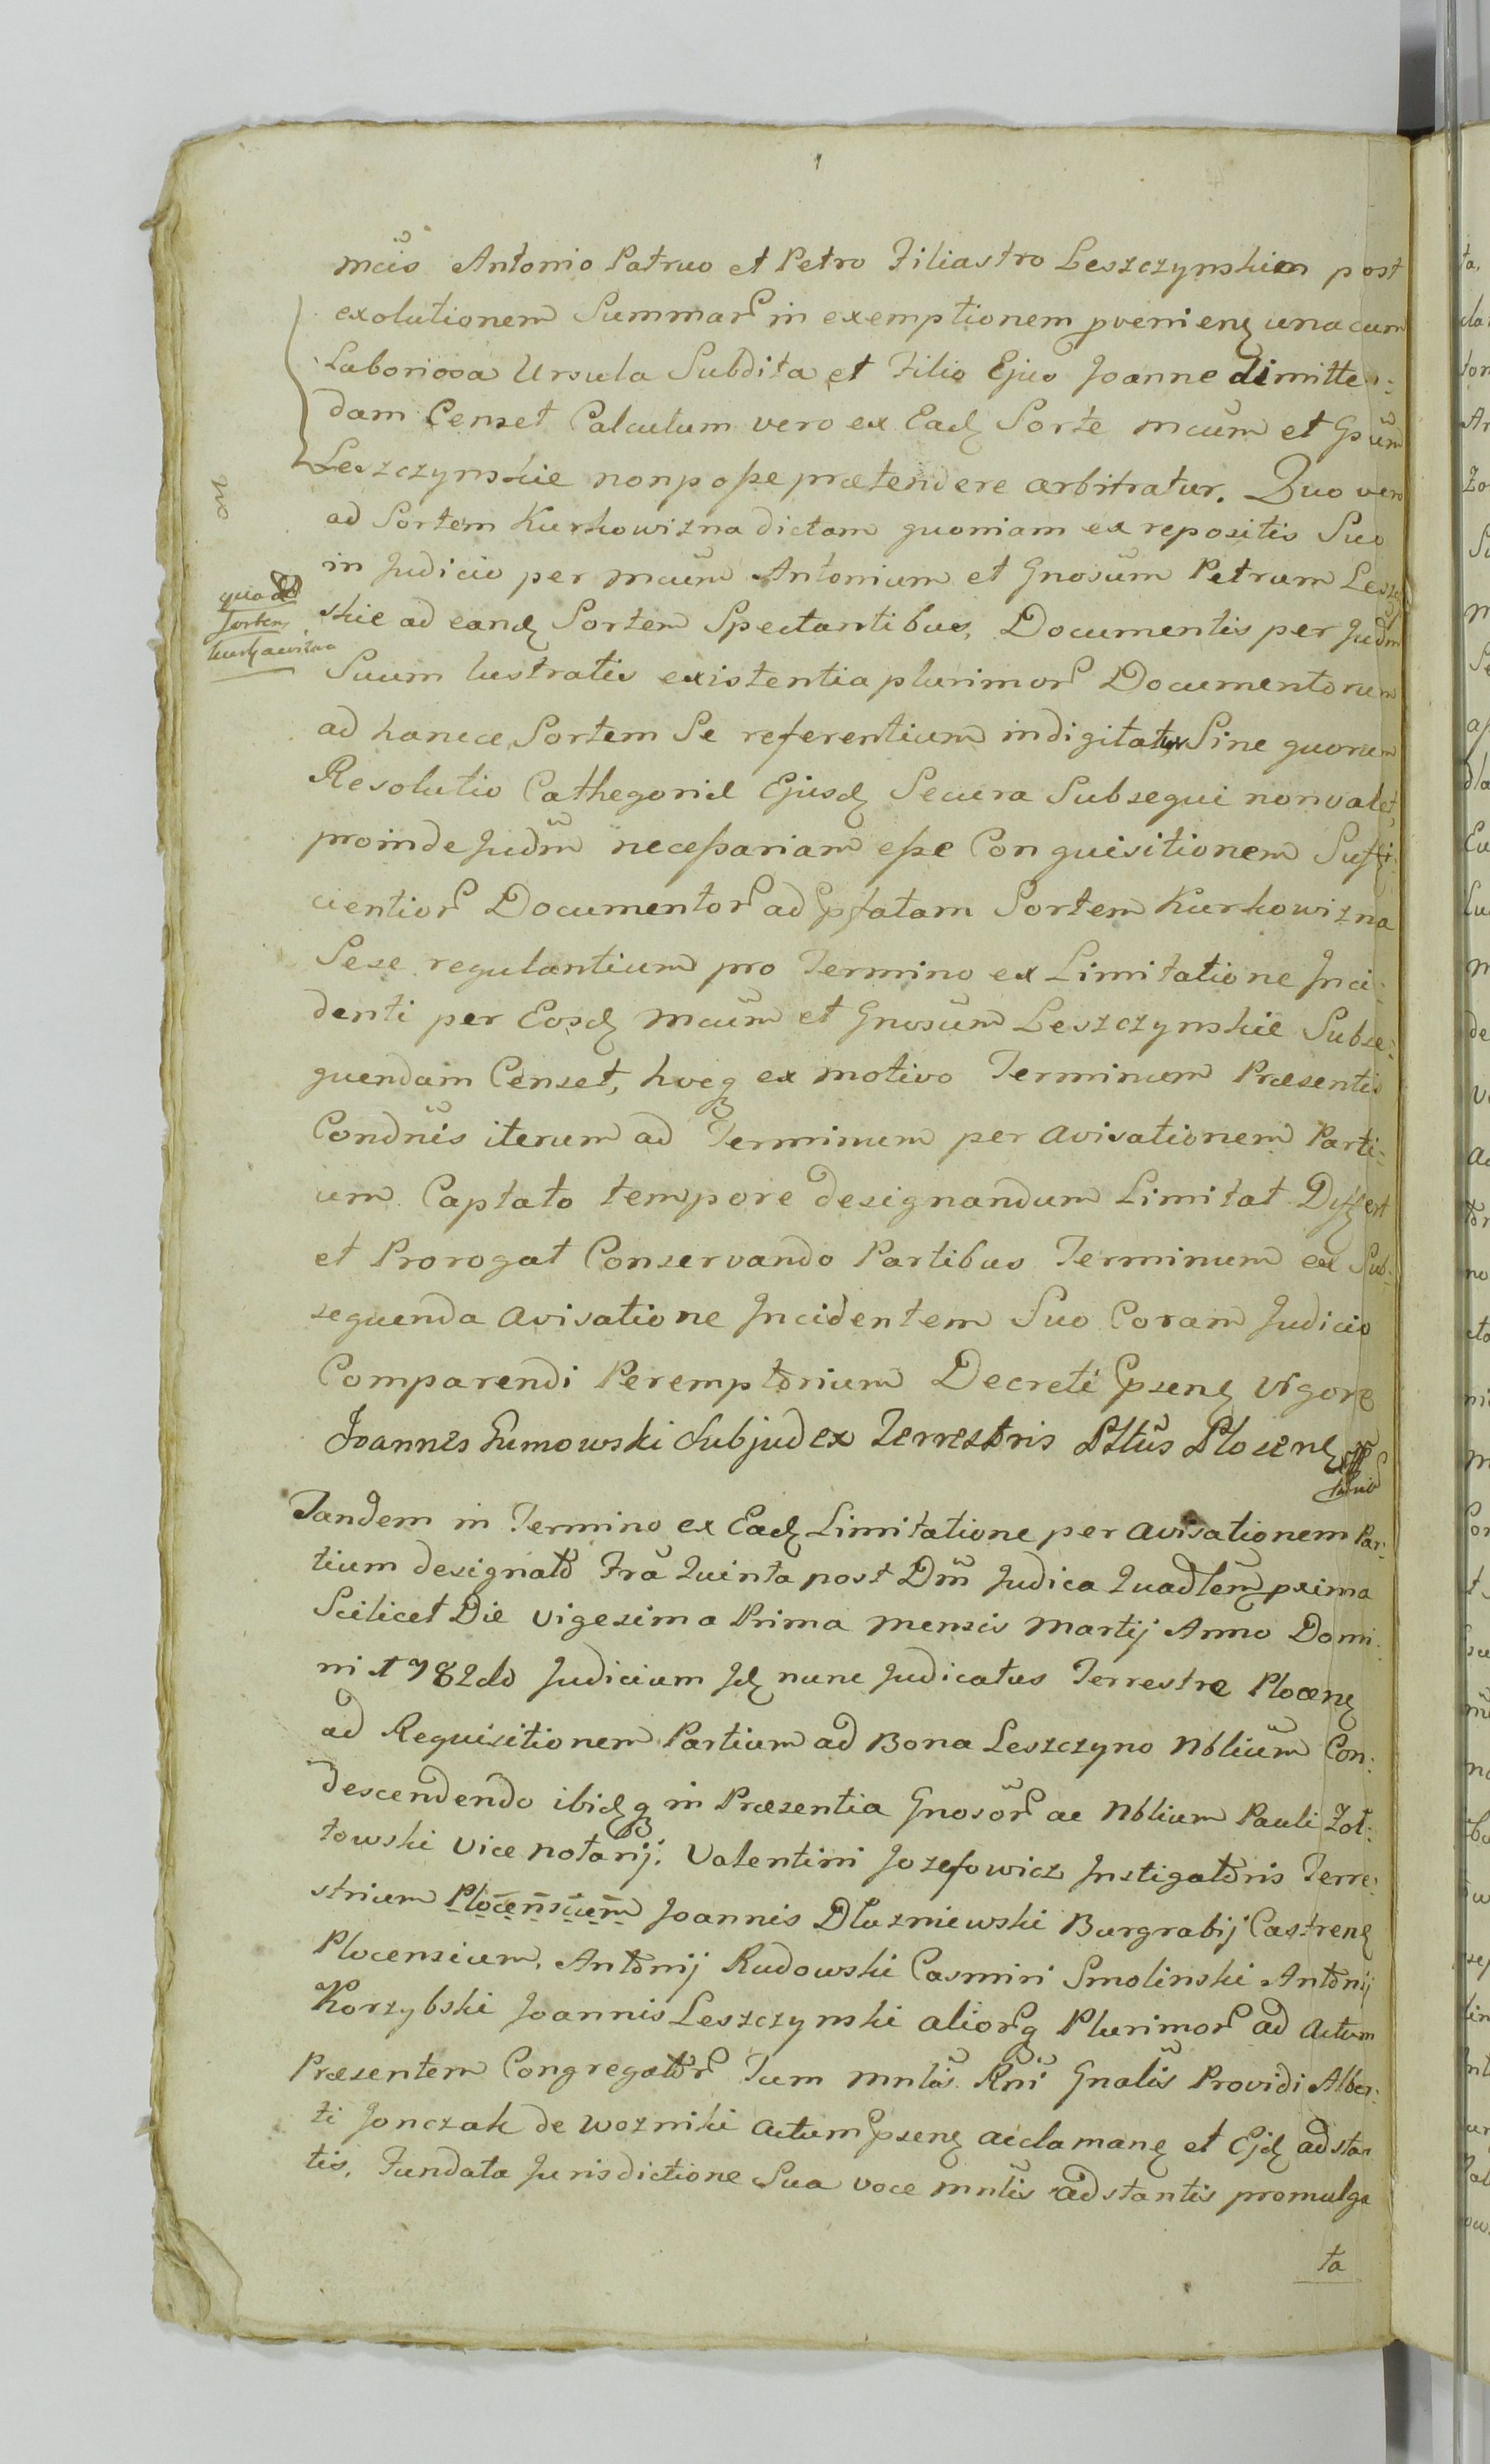 mcis Antonio Patruo et Petro Filiastro Leszczynskim post
exolutionem Summar in exemptionem pvenien una cum
Laboriosa Ursula Subdita et Filio Ejus Joanne dimitten:
dam Censet Calculum vero ex Ead Sorte mcum et Gsum
Leszczynskie non poße prætendere arbitratur. Quo vero
ad Sortem Kurkowizna dictam quoniam ex repositis Suo
in Judicio per mcum Antonium et Gnosum Petrum Leszc
quo ad
Sortem
Kurkowizna
skie ad eand Sortem Spectantibus, Documentis per Judm
Suum lustratis existentia plurimor Documentorum
ad hancce Sortem Se referentium indigitatur Sine quorum
Resolutio Cathegoriæ Ejusd Secura Subsequi non valet,
proinde Judm neceßariam eße Conquisitionem Suffi:
cientior Documentor ad pfatam Sortem Kurkowizna
Sese regulantium pro Termino ex Limitatione Inci:
denti per Eosd mcum et Gnosum Leszczynskie Subse:
quendam Censet, hocq ex motivo Terminum Præsentis
Condnis iterum ad Terminum per avisationem Parti:
um Captato tempore designandum Limitat Differt
et Prorogat Conservando Partibus Terminum ex Sub:
sequenda avisatione Incidentem Suo Coram Judicio
Comparendi Peremptorium Decreti psen vigore
Joannes Sumowski Subjudex Terrestris Pttus Plocen
Tandem in Termino ex Ead Limitatione per avisationem Par:
tium designato Fra Quinta post Dm Judica Quadlem pxima
Scilicet Die vigesima Prima mensis Martij Anno Domi:
ni 1782do Judicium Id nunc Judicatus Terrestre Plocen
ad Requisitionem Partium ad Bona Leszczyno Nblium Con:
descendendo ibidq in Præsentia Gnosor ac Nblium Pauli Zol:
towski vice notarij. Valentini Jozefowicz Instigatoris Terre:
strium Plocensium Joannis Dluzniewski Burgrabij Castren
Plocensium, Antonij Rudowski Casmiri Smolinski Antonij
Korzybski Joannis Leszczynski aliorq Plurimor ad Actum
Præsentem Congregator Tum mnlis Rni Gnalis Providi Alber:
ti Jonczak de Wozniki actum psen acclaman et Ejd adstan
tis, Fundata Jurisdictione Sua voce mnlis adstantis promulga
ta